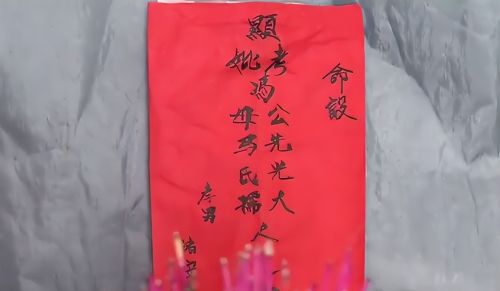 命設
顯
考
妣
馮
公先光大
母馬氏孺
人
孝男